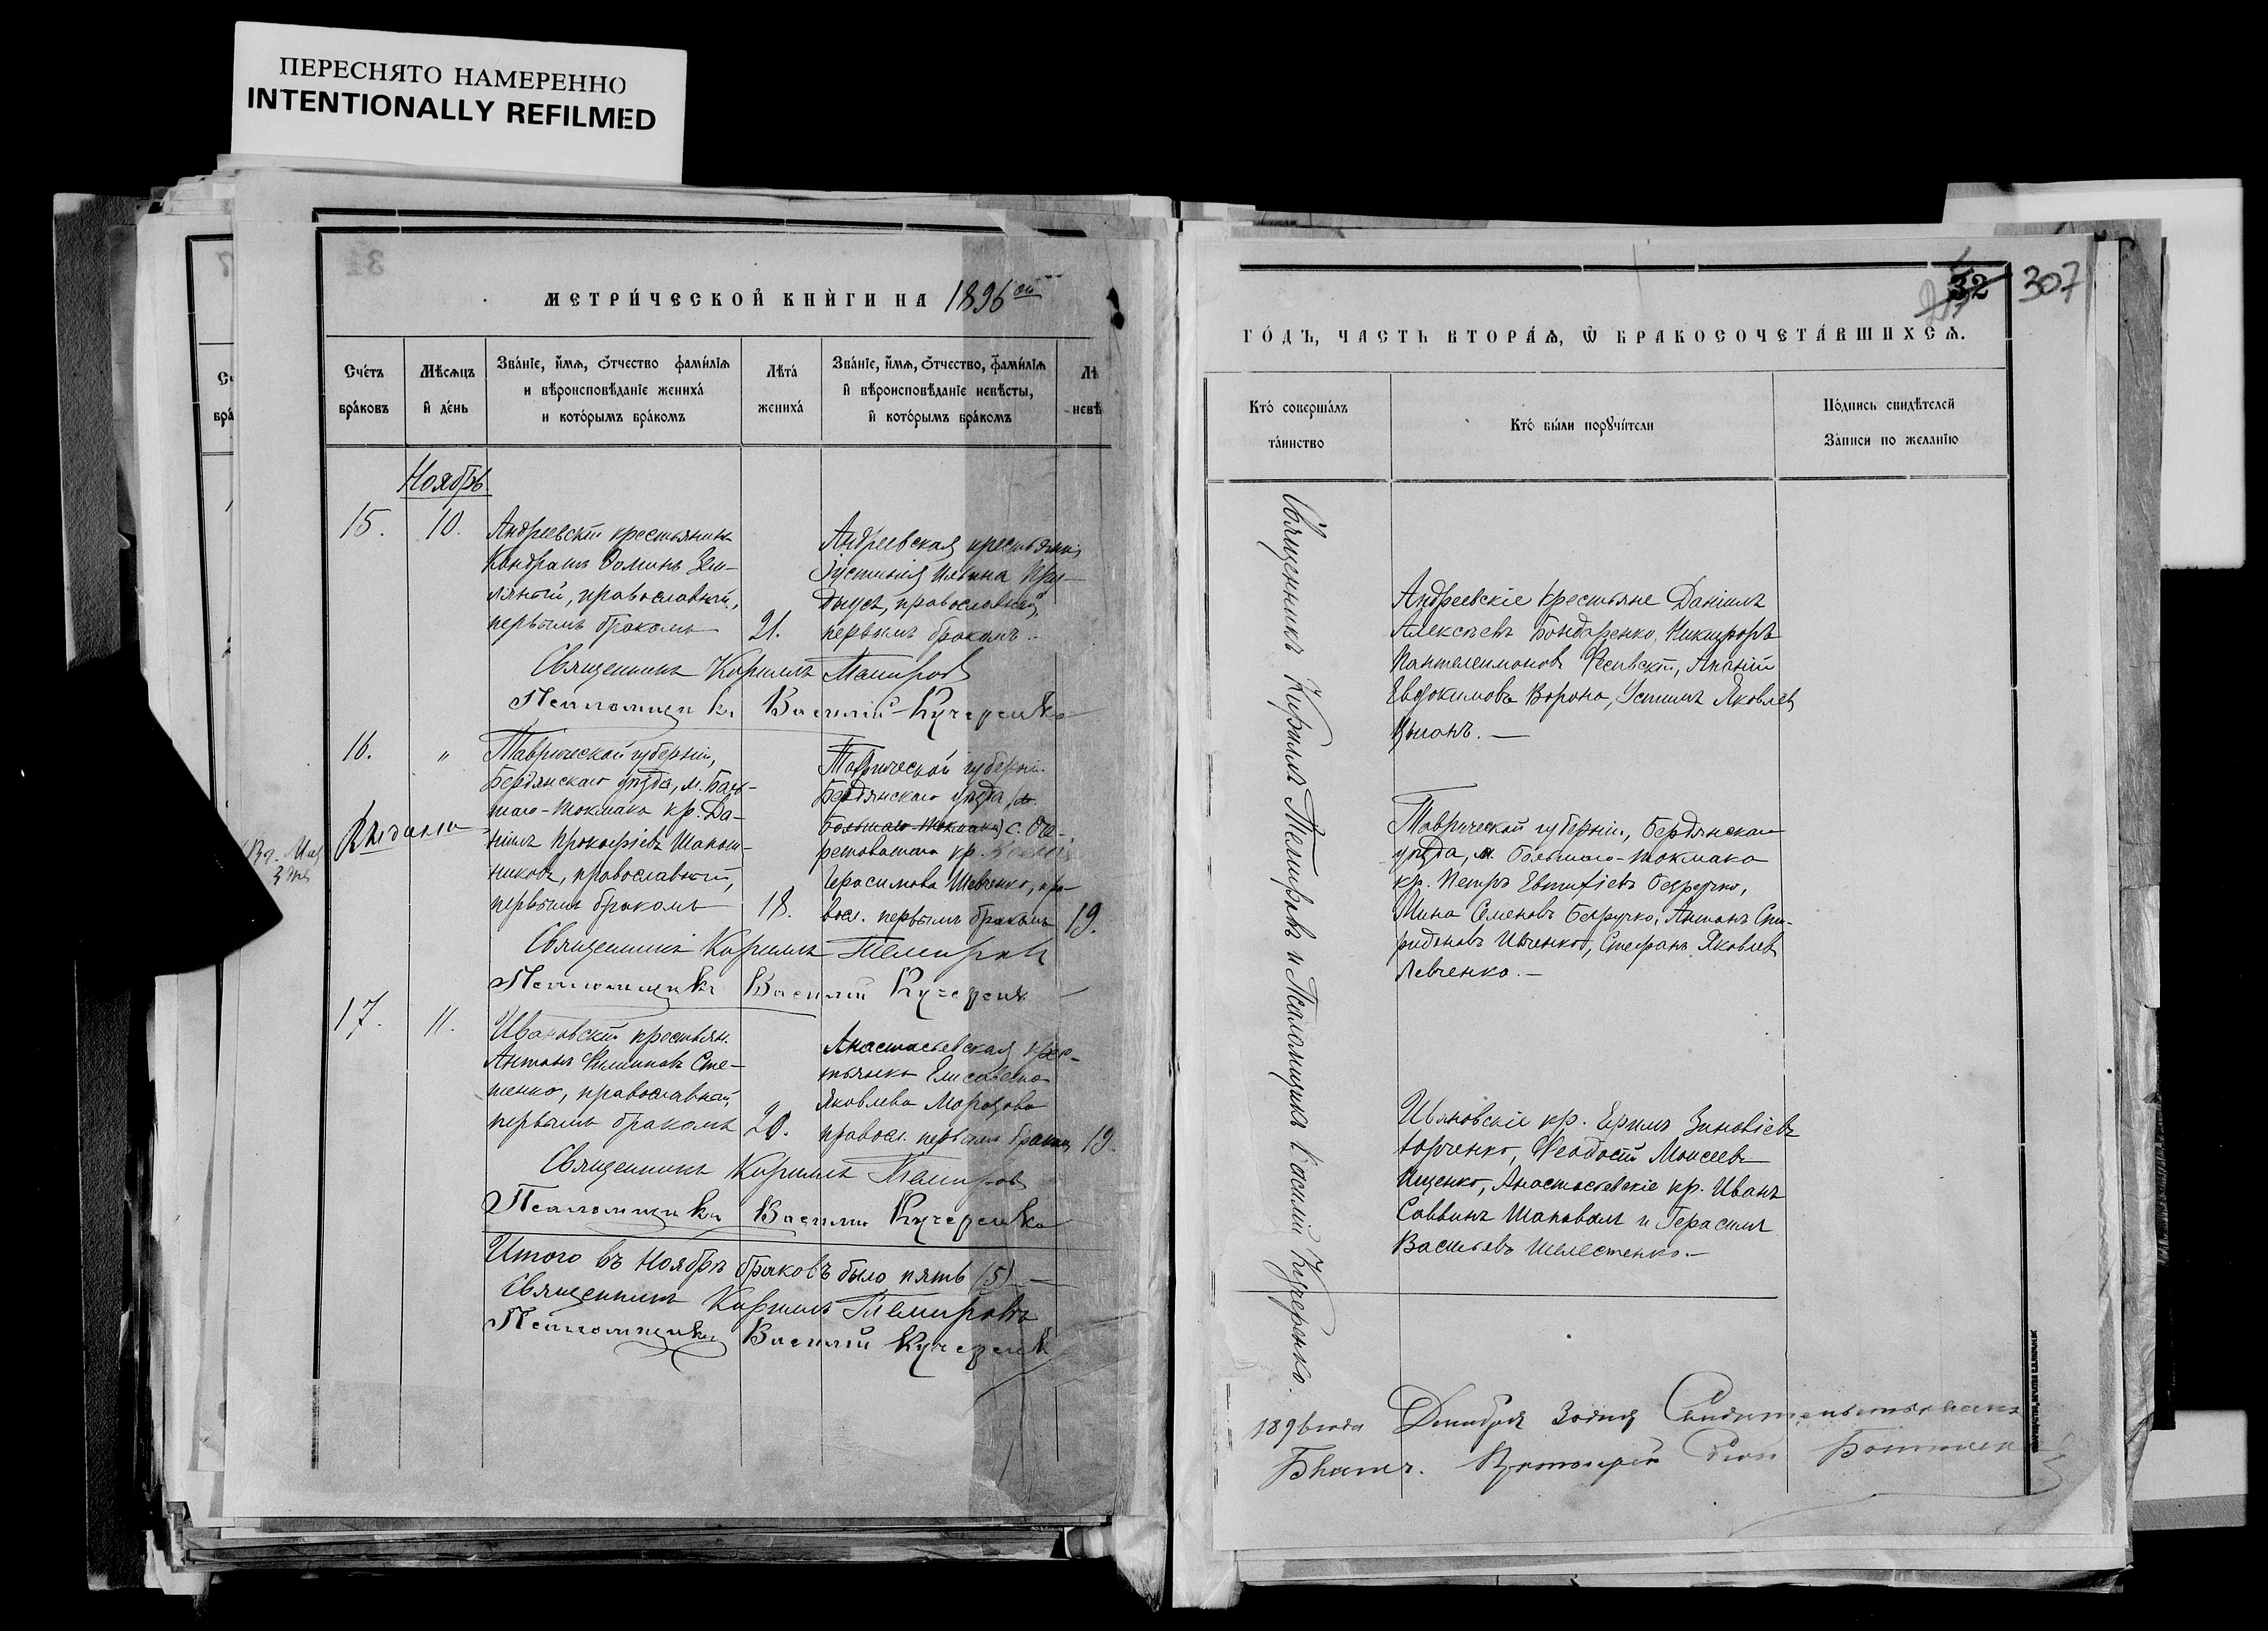 ПЕРЕСНЯТО НАМЕРЕННО
INTENTIONALLY REFILMED
МЕТРИ́ЧЕСКОЙ КНИ́ГИ НА 1896 ой
Сче́тъ бра́ковъ
Мѣ́сяцъ и҆ де́нь
Зва́нїе, и҆́мѧ, о҆́тчество фамилїѧ
и вѣроисповѣ́данїе жениха́
и кото́рымъ бра́комъ
Лѣта́ жениха́
Зва́нїе, и҆́мѧ, о҆́тчество, фамилїѧ
и҆ вѣроисповѣ́данїе невѣ́сты,
и҆ кото́рымъ бра́комъ
Лѣ
невѣ
Ноябрь
15. 10.
Андреевскій крестьянинъ
Кондратъ Фоминъ Зем-
лянный, православный,
первымъ бракомъ
21.
Андреевская крестьянка
Іустинія Ильина
православная,
первымъ бракомъ.
Священникъ Кириллъ Темировъ
Псаломщикъ Василій Кучеренко
16. "
Таврической губерніи,
Бердянскаго уѣзда, м. Боль-
шаго-Токмака кр. Да-
ніилъ Прокофіевъ Шапош-
никовъ, православный,
первымъ бракомъ
18.
Таврической губерніи
Бердянскаго уѣзда (м.
Большаго Токмака) с. Оч-
ретоватаго кр.
Герасимова Шевченко, пра-
восл. первымъ бракомъ
19.
Выдано
Священникъ Кириллъ Темировъ
Псаломщикъ Василій Кучеренко
17. 11.
Ивановскій крестьян.
Антонъ Филиповъ Сте-
ценко, православный,
первымъ бракомъ
20.
Анастасьевская крес-
тьянка Елисавета
Яковлева Морозова
правосл. первымъ бракомъ
19.
Священникъ Кириллъ Темировъ
Псаломщикъ Василій Кучеренко
Итого въ Ноябрѣ браковъ было пять (5)
Священникъ Кириллъ Темировъ
Псаломщикъ Василій Кучеренко
32 307
ГО́ДЪ, ЧАСТЬ ВТОРА́Ѧ, Ѡ҆ БРАКОСОЧЕТА́ВШИХСѦ.
Кто́ соверша́лъ
та́инство
Кто́ бы́ли порꙋчи́тели
По́дпись свидѣ́телей
За́писи по жела́нїю
Священникъ Кириллъ Темировъ и Псаломщикъ Василій Кучеренко.
Андреевскіе крестьяне Даніилъ
Алексѣевъ Бондаренко, Никифоръ
Пантелеимоновъ Ананій
Евдокимовъ Ворона, Устимъ Яковлевъ
Цыганъ.—
Таврической губерніи, Бердянскаго
уѣзда, м. Большаго-Токмака
кр. Петръ Евтифіевъ Безручко,
Мина Семеновъ Безручко, Антонъ Спи-
ридоновъ Ивченко, Стефанъ Яковлевъ
Левченко.—
Ивановскіе кр. Ефимъ Зиновіевъ
Юрченко, Феодосій Моисеевъ
Ищенко, Анастасьевскіе кр. Иванъ
Саввинъ Шаповалъ и Герасимъ
Васильевъ Шелестенко.—
1896 года Декабря 30 дня Свидетельствовалъ
Благоч.